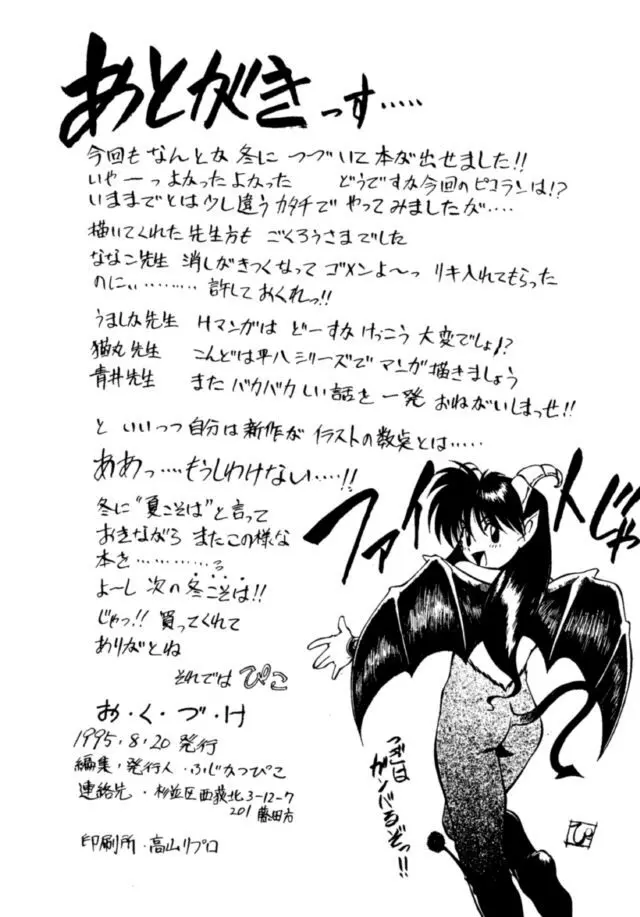 あとがきっす‥‥‥
今回もなんとな冬につづいて本が出せました!!
いやーっよかったよかった どうですな今回のピコランは!?
いままでとは少し違うカタチでやってみましたが‥‥
描いてくれた先生方もごくろうさまでした
ななこ先生 消しがきつくなってゴメンよ〜っ リキ入れてもらった
のにぃ‥‥‥‥ 許しておくれっ!!
うましな先生 Hマンガはどーすなけっこう大変でしょ!?
猫丸先生 こんどは平八シリーズでマンガ描きましょう
青井先生 またバカバカしい話を一発おねがいしまっせ!!
といいつつ自分は新作がイラストの数点とは‥‥‥
ああっ‥‥もうしわけない‥‥!!
冬に“夏こそば”と言って
おきながら またこの様な
本を‥‥‥‥‥‥る
よーし 次の冬こそは!!
じゃっ!! 買ってくれて
ありがとね
それでは ぴこ
お・く・づ・け
1995.8.20 発行
編集・発行人・ふじなつぴこ
連絡先・杉並区西荻北3-12-7
201 藤田方
印刷所・高山リプロ
ファイトじゃ
つぎは
ガンバるぞっ!!
ぴ